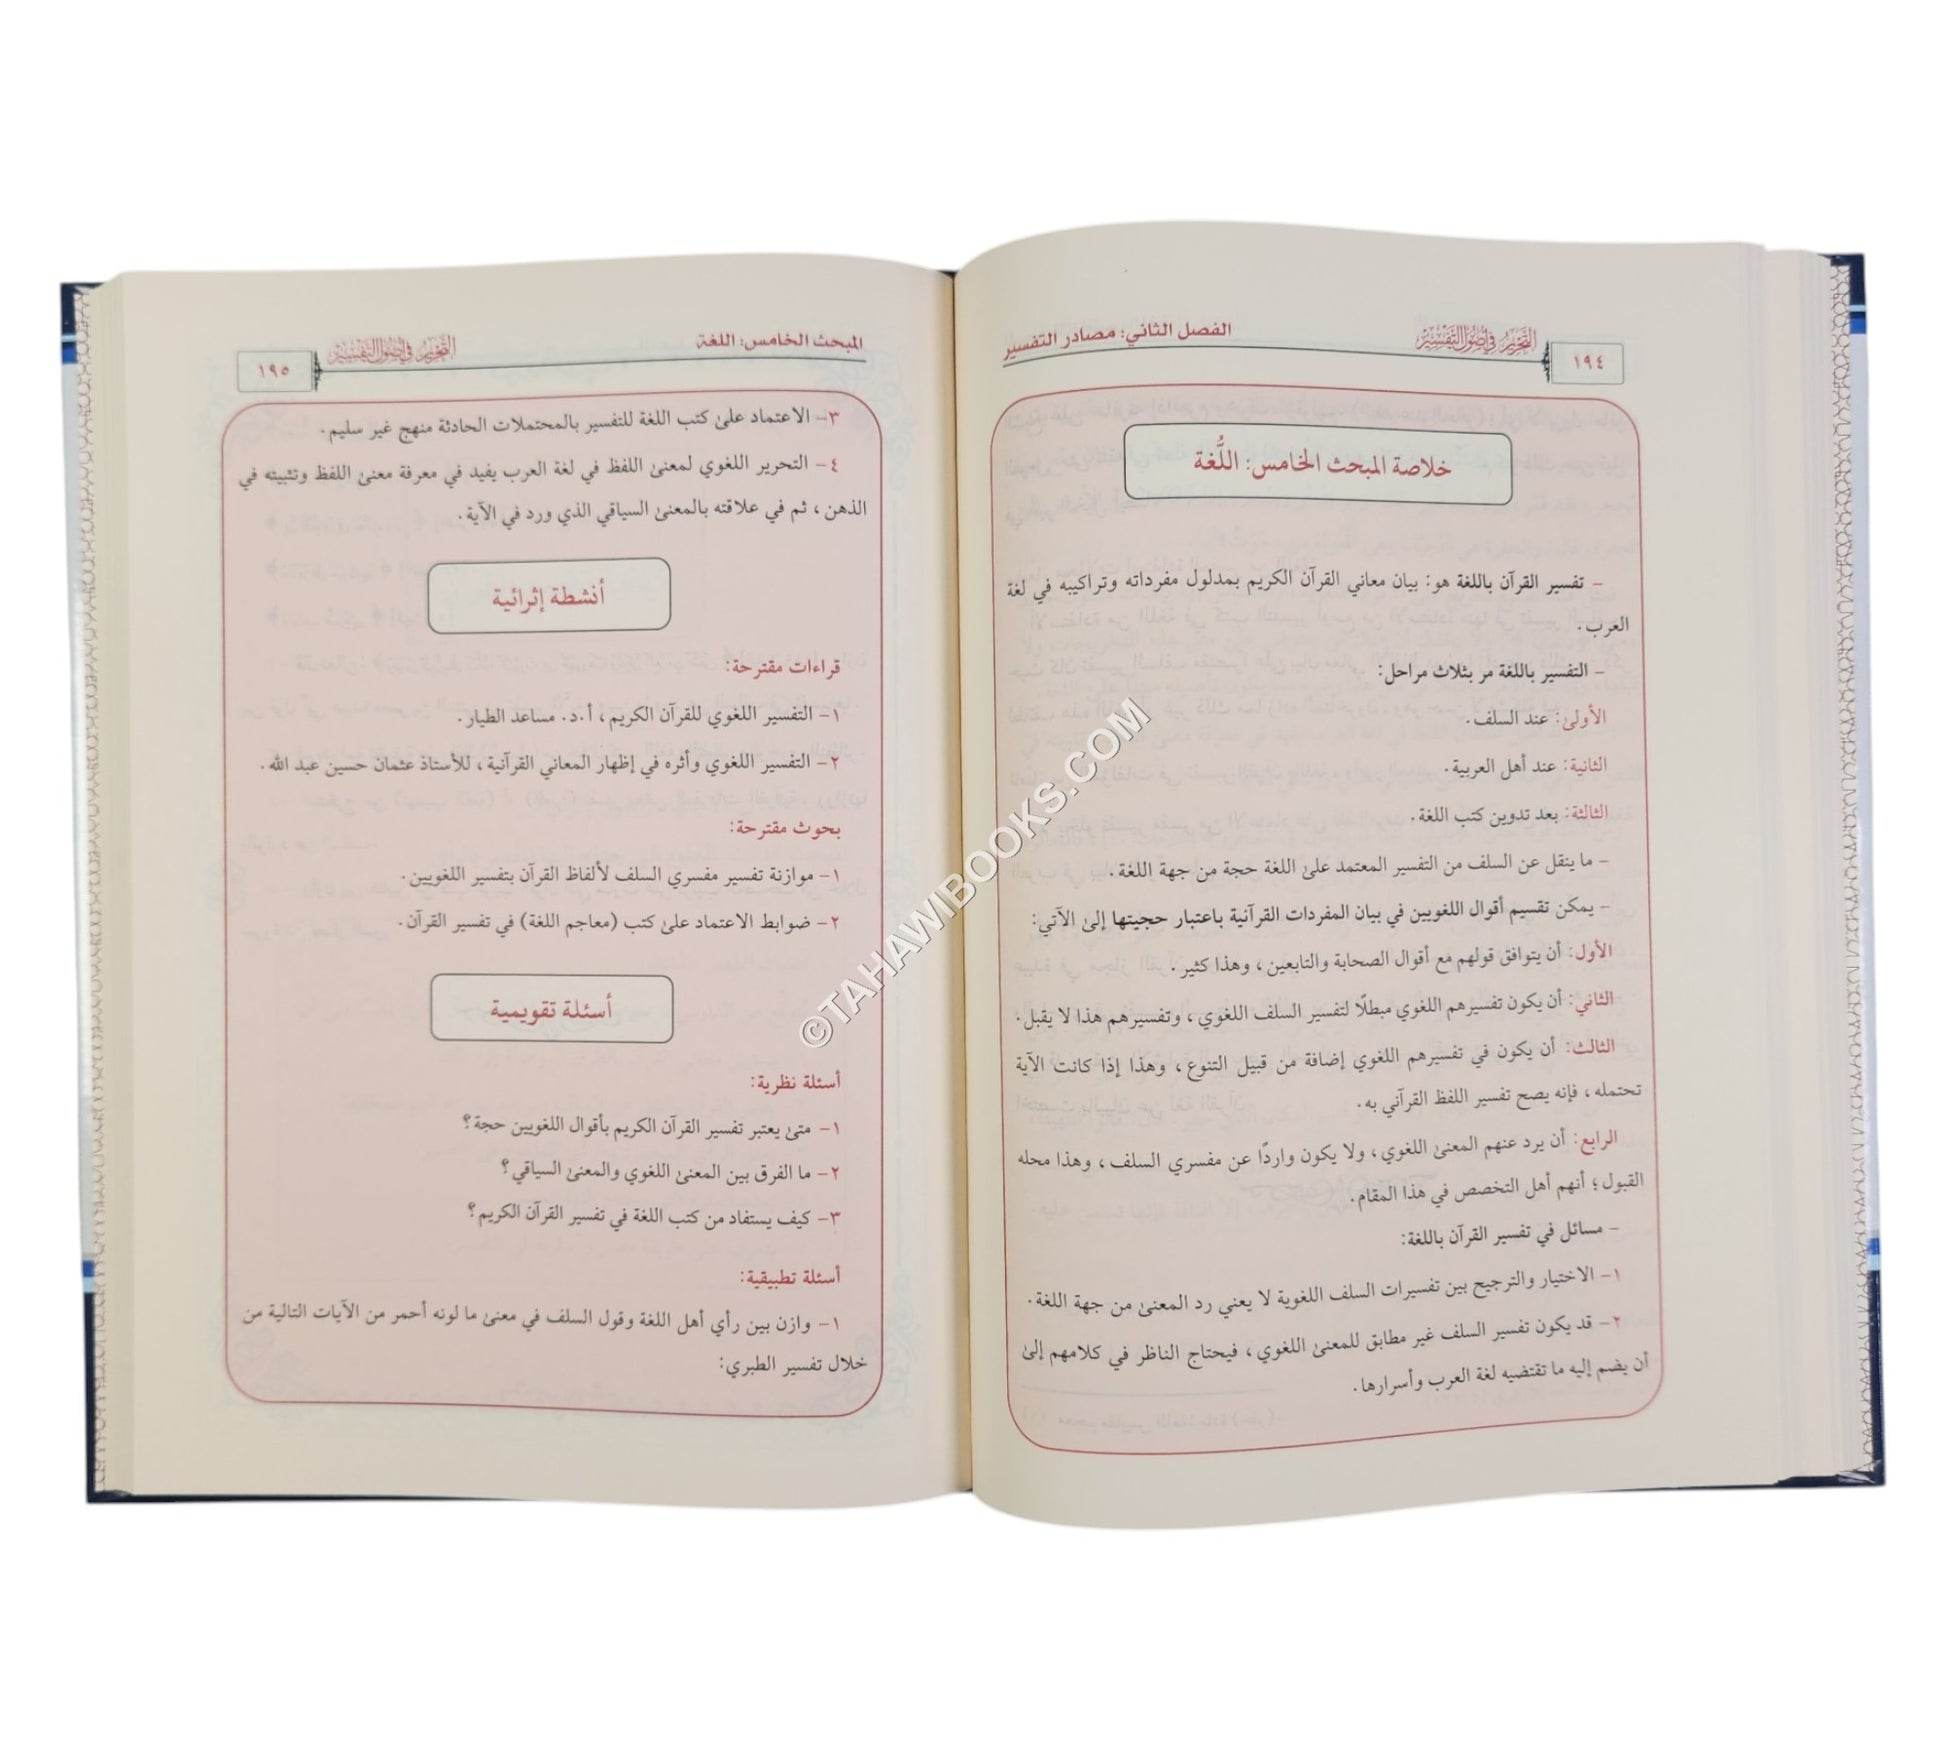 ١٩٤
التحرير في أصول التفسير
الفصل الثاني: مصادر التفسير
خلاصة المبحث الخامس: اللُّغة
– تفسير القرآن باللغة هو: بيان معاني القرآن الكريم بمدلول مفرداته وتراكيبه في لغة
العرب.
– التفسير باللغة مر بثلاث مراحل:
الأولىٰ: عند السلف.
الثانية: عند أهل العربية.
الثالثة: بعد تدوين كتب اللغة.
– ما ينقل عن السلف من التفسير المعتمد علىٰ اللغة حجة من جهة اللغة.
– يمكن تقسيم أقوال اللغويين في بيان المفردات القرآنية باعتبار حجيتها إلىٰ الآتي:
الأول: أن يتوافق قولهم مع أقوال الصحابة والتابعين، وهذا كثير.
الثاني: أن يكون تفسيرهم اللغوي مبطلًا لتفسير السلف اللغوي، وتفسيرهم هذا لا يقبل.
الثالث: أن يكون في تفسيرهم اللغوي إضافة من قبيل التنوع، وهذا إذا كانت الآية
تحتمله، فإنه يصح تفسير اللفظ القرآني به.
الرابع: أن يرد عنهم المعنىٰ اللغوي، ولا يكون واردًا عن مفسري السلف، وهذا محله
القبول؛ أنهم أهل التخصص في هذا المقام.
– مسائل في تفسير القرآن باللغة:
١– الاختيار والترجيح بين تفسيرات السلف اللغوية لا يعني رد المعنىٰ من جهة اللغة.
٢– قد يكون تفسير السلف غير مطابق للمعنىٰ اللغوي، فيحتاج الناظر في كلامهم إلىٰ
أن يضم إليه ما تقتضيه لغة العرب وأسرارها.
المبحث الخامس: اللغة
التحرير في أصول التفسير
١٩٥
٣– الاعتماد علىٰ كتب اللغة للتفسير بالمحتملات الحادثة منهج غير سليم.
٤– التحرير اللغوي لمعنىٰ اللفظ في لغة العرب يفيد في معرفة معنىٰ اللفظ وتثبيته في
الذهن، ثم في علاقته بالمعنىٰ السياقي الذي ورد في الآية.
أنشطة إثرائية
قراءات مقترحة:
١– التفسير اللغوي للقرآن الكريم، أ.د. مساعد الطيار.
٢– التفسير اللغوي وأثره في إظهار المعاني القرآنية، للأستاذ عثمان حسين عبد الله.
بحوث مقترحة:
١– موازنة تفسير مفسري السلف لألفاظ القرآن بتفسير اللغويين.
٢– ضوابط الاعتماد علىٰ كتب (معاجم اللغة) في تفسير القرآن.
أسئلة تقويمية
أسئلة نظرية:
١– متىٰ يعتبر تفسير القرآن الكريم بأقوال اللغويين حجة؟
٢– ما الفرق بين المعنىٰ اللغوي والمعنىٰ السياقي؟
٣– كيف يستفاد من كتب اللغة في تفسير القرآن الكريم؟
أسئلة تطبيقية:
١– وازن بين رأي أهل اللغة وقول السلف في معنىٰ ما لونه أحمر من الآيات التالية من
خلال تفسير الطبري:
©TAHAWIBOOKS.COM